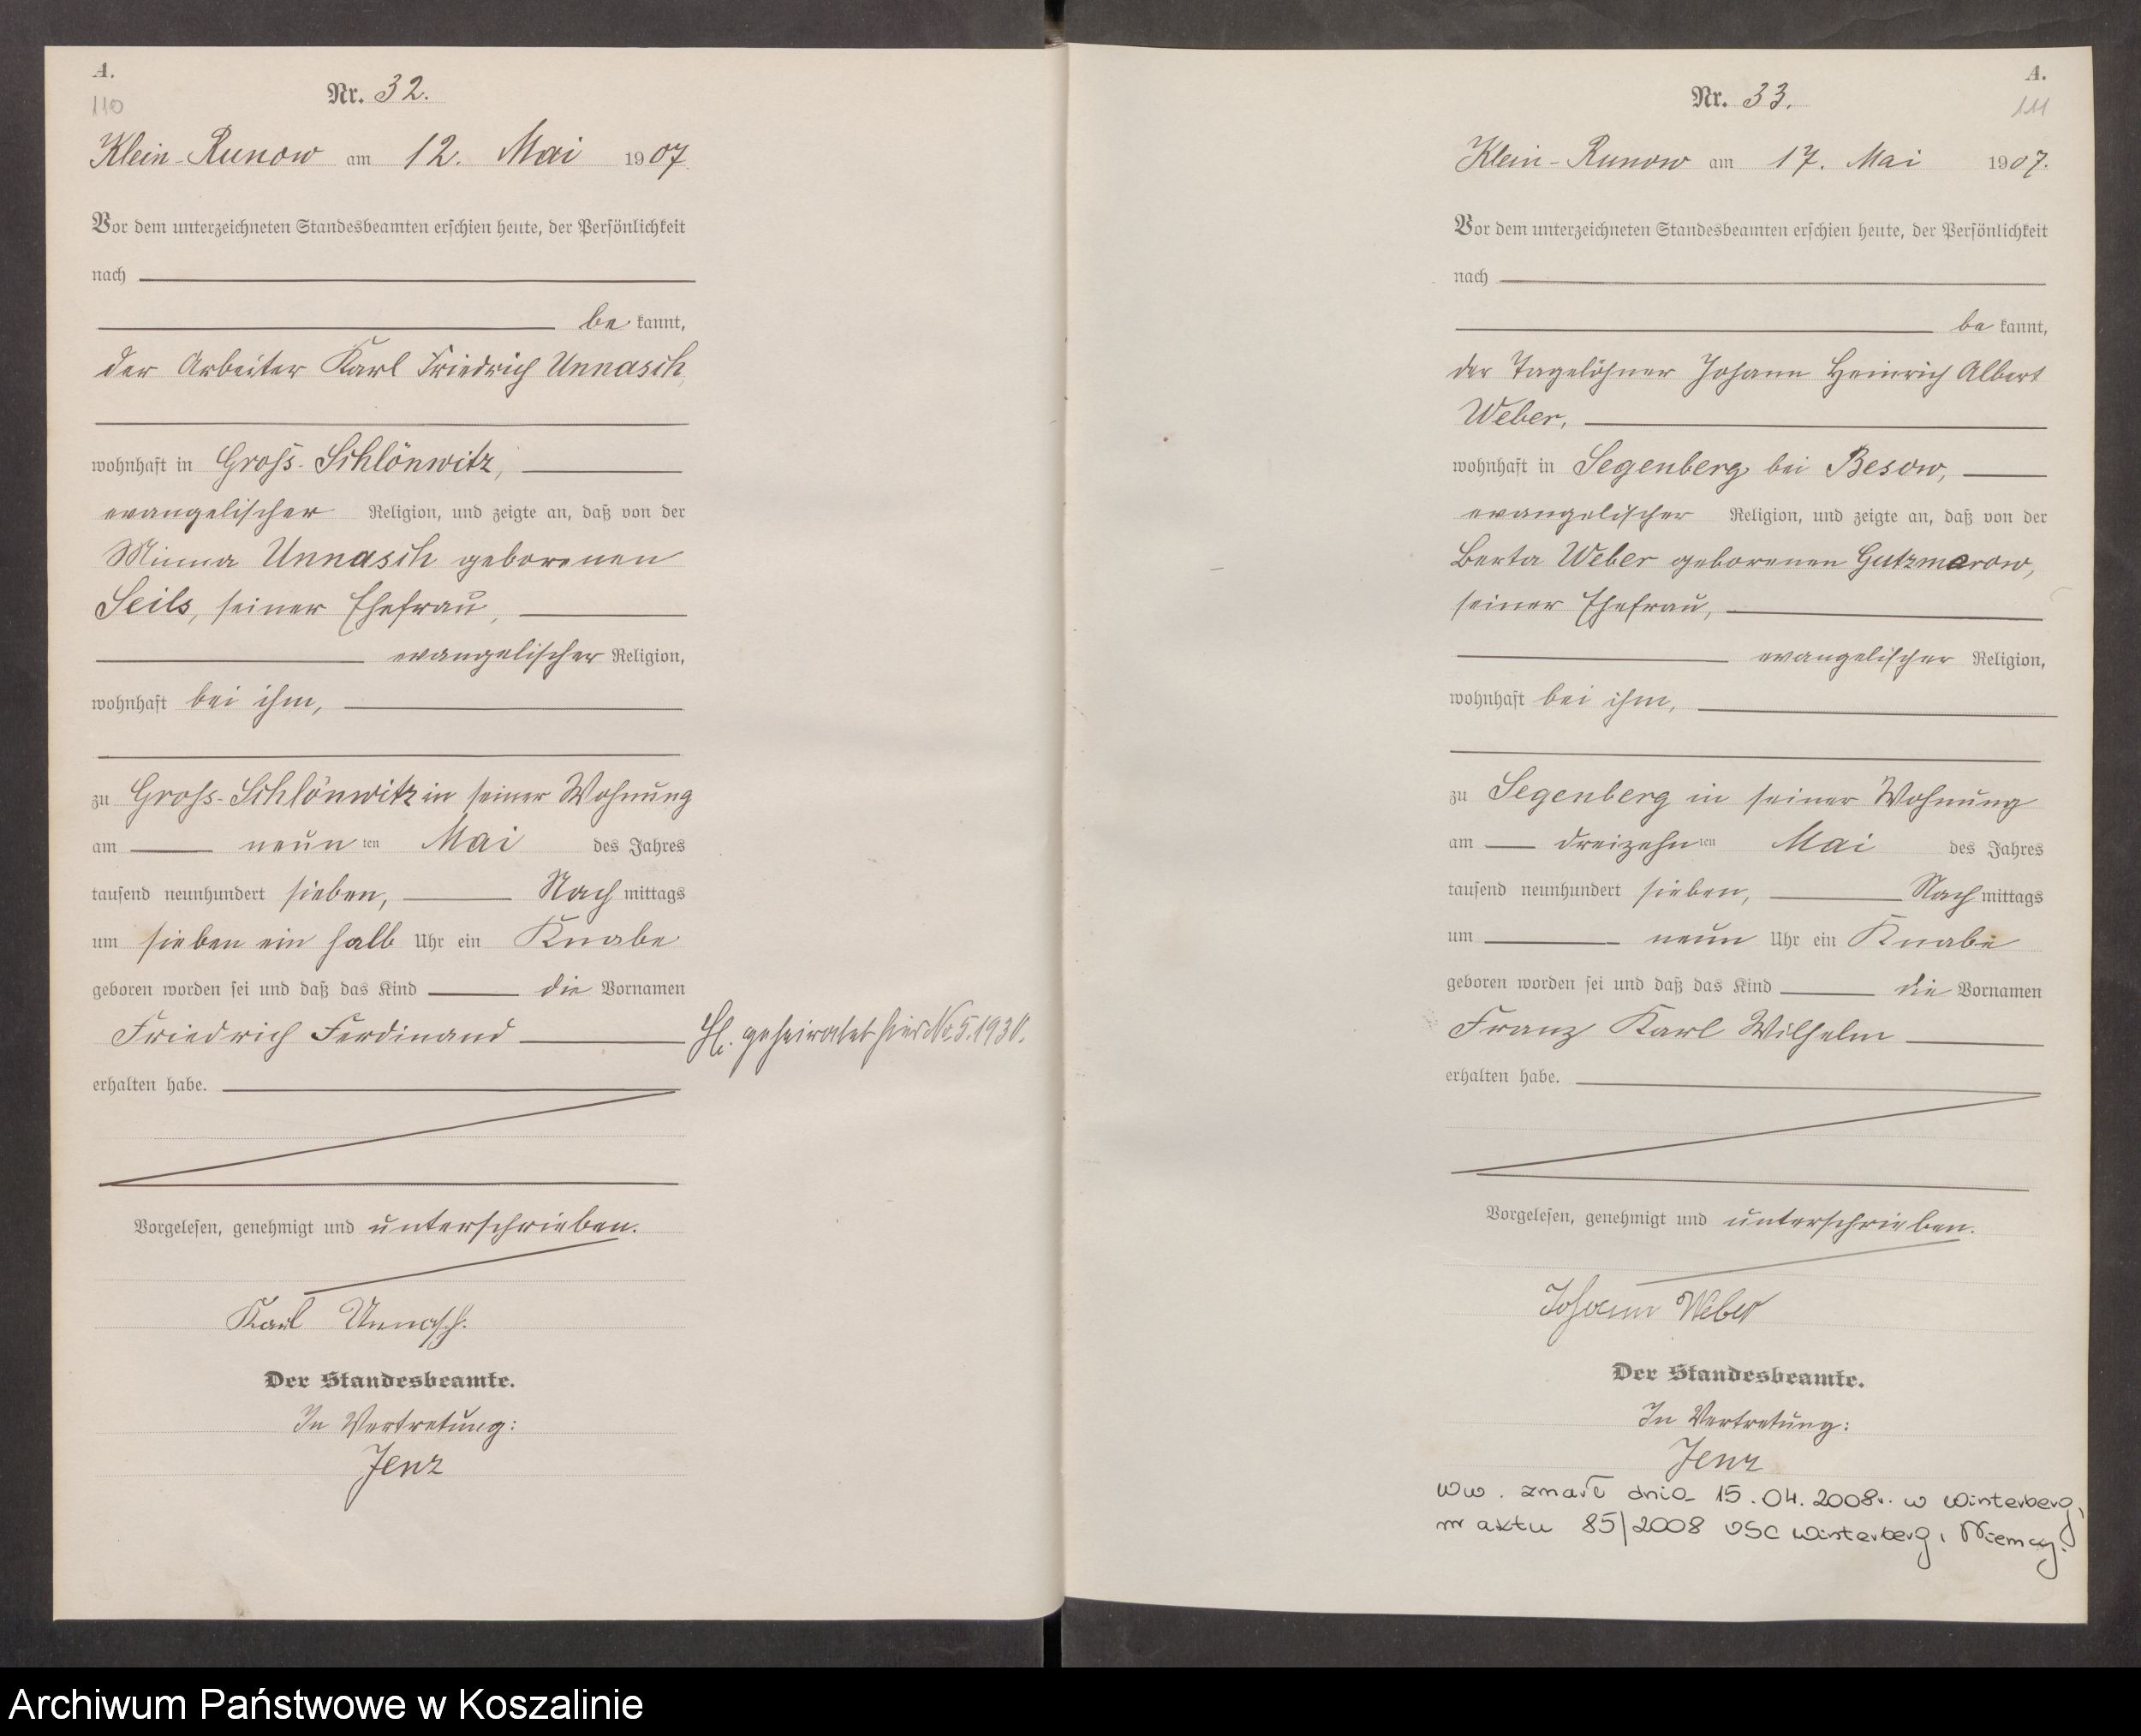 A.
110
Nr. 32.
Klein-Runow am 12. Mai 1907.
Vor dem unterzeichneten Standesbeamten erschien heute, der Persönlichkeit
nach
be kannt,
der Arbeiter Karl Friedrich Unnasch,
wohnhaft in Groß-Schlönwitz,
evangelischer Religion, und zeigte an, daß von der
Minna Unnasch geborenen
Seils, seiner Ehefrau,
evangelischer Religion,
wohnhaft bei ihm,
zu Groß-Schlönwitz in seiner Wohnung
am neun ten Mai des Jahres
tausend neunhundert sieben, Nach mittags
um sieben ein halb Uhr ein Knabe
geboren worden sei und daß das Kind die Vornamen
Friedrich Ferdinand
erhalten habe.
geheiratet hier No 5. 1930.
Vorgelesen, genehmigt und unterschrieben.
Karl Unnasch.
Der Standesbeamte.
In Vertretung:
Jenz
A.
111
Nr. 33.
Klein-Runow am 17. Mai 1907.
Vor dem unterzeichneten Standesbeamten erschien heute, der Persönlichkeit
nach
be kannt,
der Tagelöhner Johann Heinrich Albert
Weber,
wohnhaft in Segenberg bei Besow,
evangelischer Religion, und zeigte an, daß von der
Berta Weber geborenen Gutzmerow,
seiner Ehefrau,
evangelischer Religion,
wohnhaft bei ihm,
zu Segenberg in seiner Wohnung
am dreizehn ten Mai des Jahres
tausend neunhundert sieben, Nach mittags
um neun Uhr ein Knabe
geboren worden sei und daß das Kind die Vornamen
Franz Karl Wilhelm
erhalten habe.
Vorgelesen, genehmigt und unterschrieben.
Johann Weber
Der Standesbeamte.
In Vertretung:
Jenz
ww. zmarł dnia 15.04.2008r. w Winterberg,
nr aktu 85/2008 USC Winterberg, Niemcy.
Archiwum Państwowe w Koszalinie